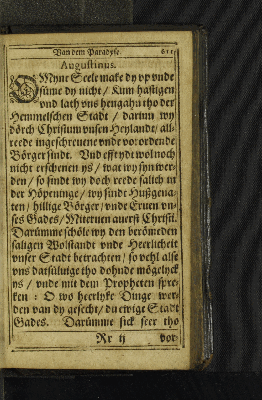 Van dem Paradyse. 611
Augustinus.
O Myne Seele make dy vp vnde
süme dy nicht / Kum hastigen
vnd lath vns hengahn tho der
Hemmelschen Stadt / darinn wy
dörch Christum vnsen Heylandt / all-
reede ingeschreuene vnde vorordende
Börger sindt. Vnd efft ydt wol noch
nicht erschenen ys / wat wy syn wer-
den / so sindt wy doch reede salich in
der Höpeninge / wy sindt Hußgena-
ten / hillige Börger / vnde Eruen vn-
ses Gades / Miteruen auerst Christi.
Darümme schöle wy den berömeden
saligen Wolstandt vnde Heerlicheit
vnser Stadt betrachten / so vehl alse
vns datsüluige tho dohnde mögelyck
ys / vnde mit dem Propheten spre-
ken : O wo heerlyke Dinge wer-
den van dy gesecht / du ewige Stadt
Gades. Darümme sick seer tho
Rr ij vor-